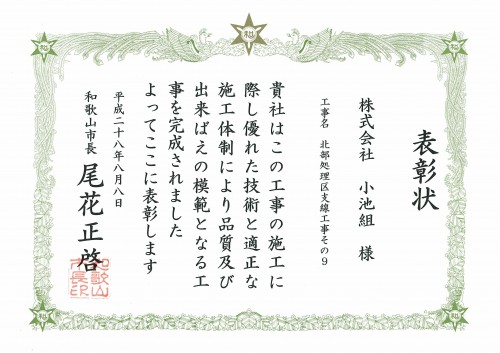 表彰状
株式会社 小池組 様
工事名 北部処理区支線工事その9
貴社はこの工事の施工に
際し優れた技術と適正な
施工体制により品質及び
出来ばえの模範となる工
事を完成されました
よってここに表彰します
平成二十八年八月八日
和歌山市長 尾花正啓
和歌山
市長印